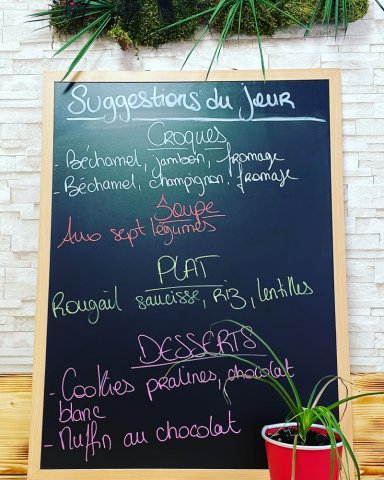 Suggestions du jour
Croques
- Béchamel, jambon, fromage
- Béchamel, champignon, fromage
Soupe
Aux sept légumes
PLAT
Rougail saucisse, Riz, lentilles
DESSERTS
- Cookies pralines, chocolat
blanc
- Muffin au chocolat